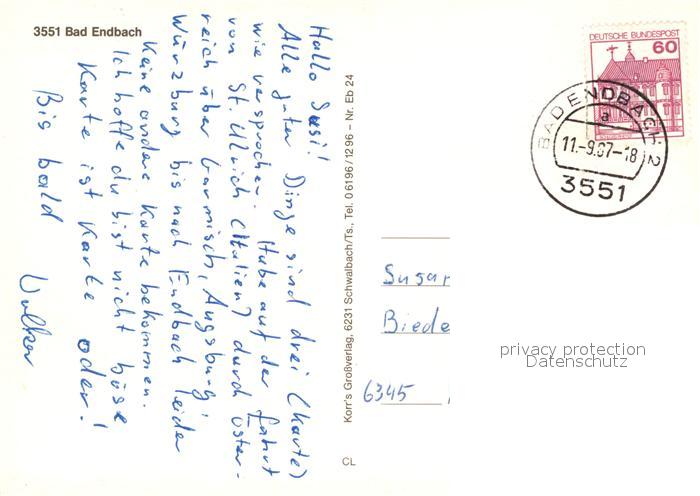 3551 Bad Endbach
Hallo Susi!
Alle guten Dinge sind drei (Karte)
wie versprochen. Habe auf der Fahrt
von St. Ulrich (Italien) durch Öster-
reich über Garmisch, Augsburg,
Würzburg bis nach Endbach leider
Keine andere Karte bekommen.
Ich hoffe du bist nicht böse
Karte ist Karte oder!
Bis bald
Volker
Korr's Großverlag, 6231 Schwalbach/Ts., Tel. 06196/1296 – Nr. Eb 24
CL
DEUTSCHE BUNDESPOST
60
BAD ENDBACH 2
a
11.-9.87-18
3551
Susan
Biede
6345
privacy protection
Datenschutz